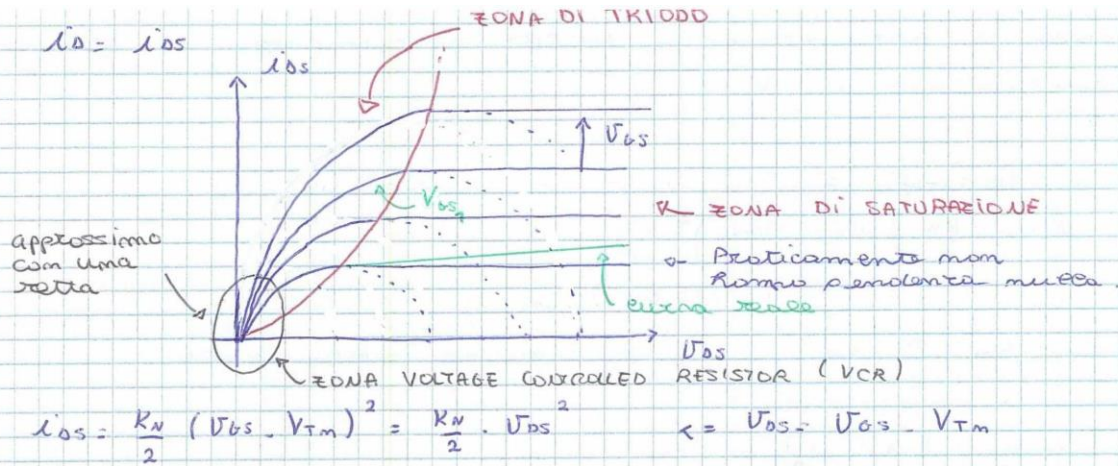 ZONA DI TRIODO
iD = iDS
iDS
VGS
VGS1
ZONA DI SATURAZIONE
approssimo
con una
retta
Praticamente non
hanno pendenza nulla
curva reale
VDS
ZONA VOLTAGE CONTROLLED RESISTOR (VCR)
iDS = KN/2 (VGS - VTm)² = KN/2 · VDS² <= VDS = VGS - VTm